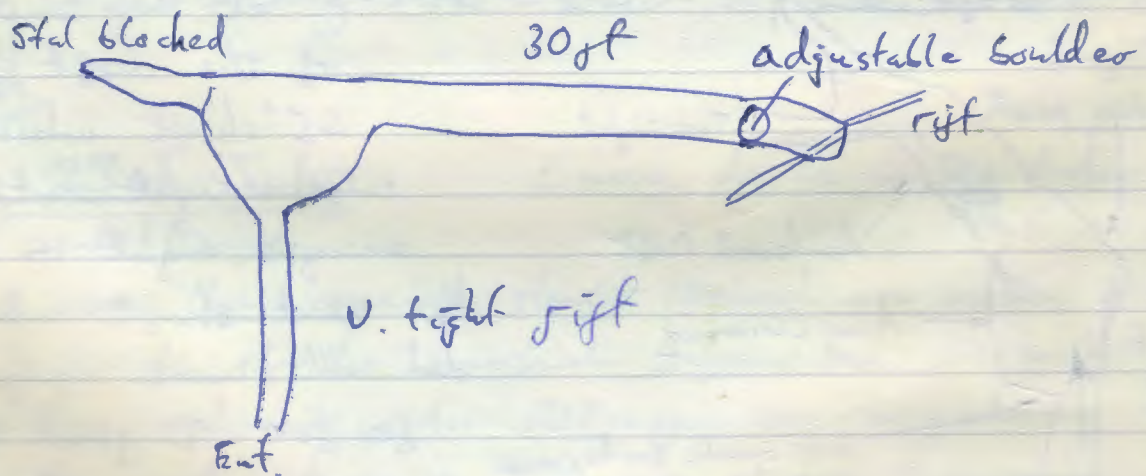 Stal blocked
30ft
adjustable boulder
rift
V. tight rift
Ent.